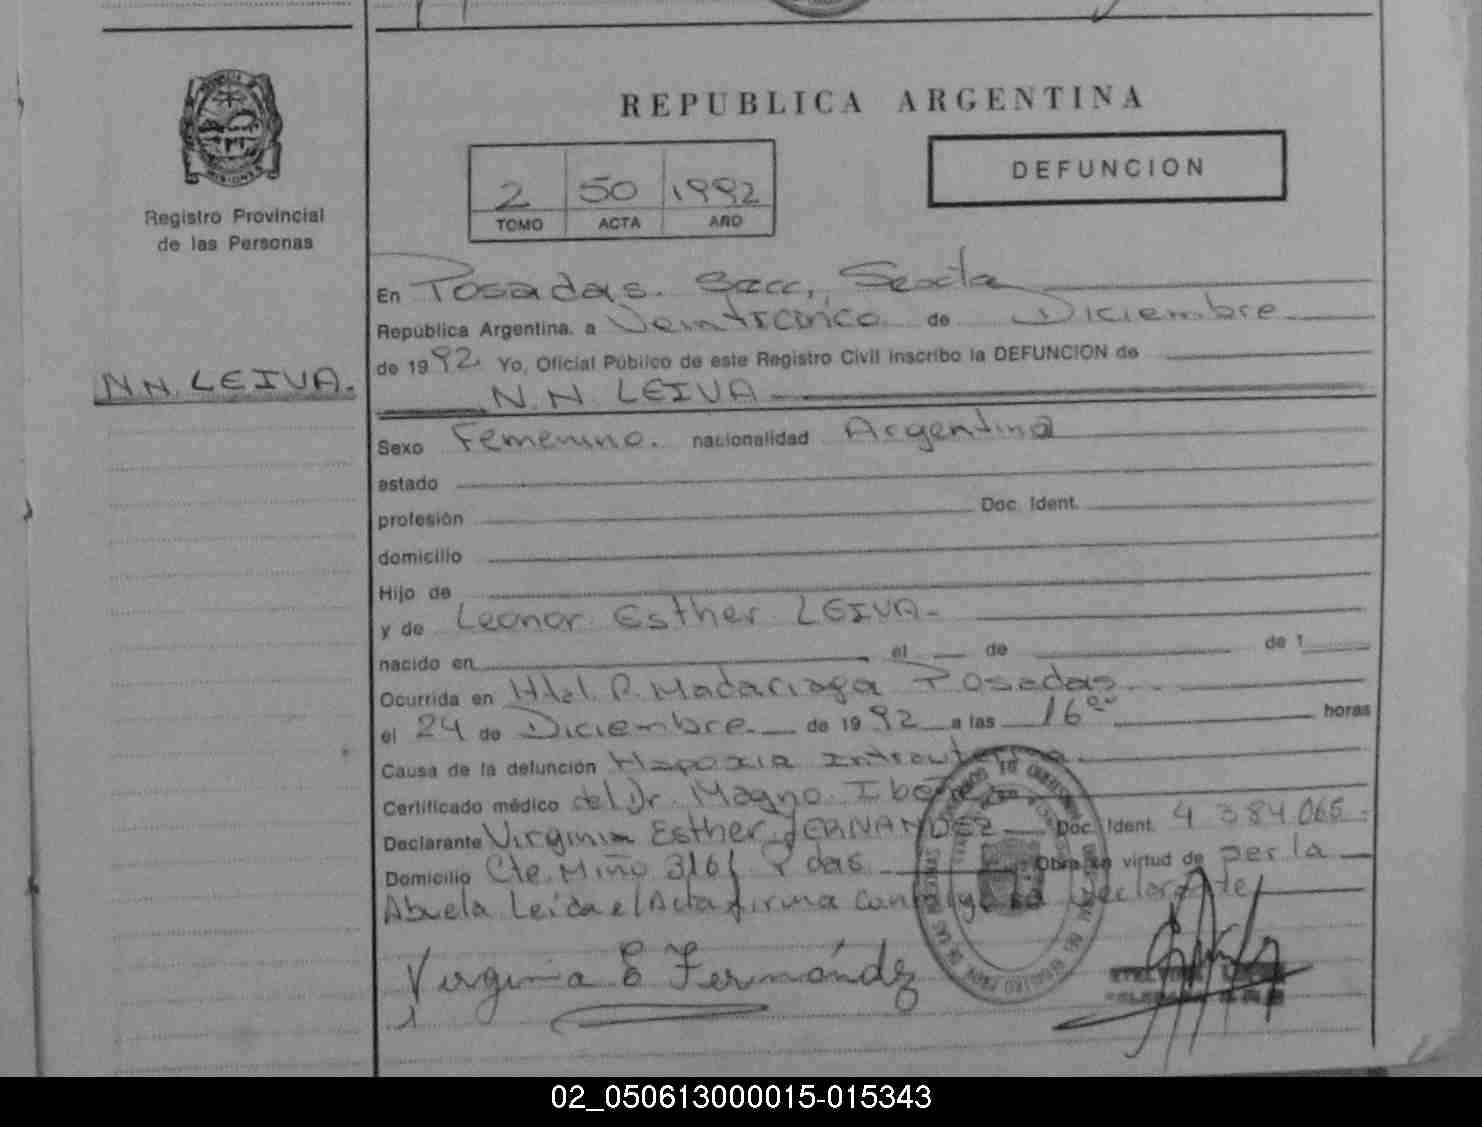 REPUBLICA ARGENTINA
DEFUNCION
MISIONES
Registro Provincial
de las Personas
2 50 1992
TOMO ACTA AÑO
En Posadas. Secc, Sexta
República Argentina, a Veinticinco de Diciembre
de 1992. Yo, Oficial Público de este Registro Civil inscribo la DEFUNCION de
N.N. LEIVA.
N.N. LEIVA
Sexo Femenino. nacionalidad Argentina
estado
profesión Doc. Ident.
domicilio
Hijo de
y de Leonor Esther LEIVA.
nacido en el de de 1
Ocurrida en Htal. R. Madariaga Posadas
el 24 de Diciembre de 1992 a las 16 horas
Causa de la defunción Hipoxia Intrauterina.
Certificado médico del Dr. Magno
Declarante Virginia Esther FERNANDEZ Doc. Ident. 4 384.065
Domicilio Cte. Miño 3161 Pdas. Obra en virtud de per. la
Abuela Leída el Acta firma conmigo la declarante
Virginia E Fernández
02_050613000015-015343